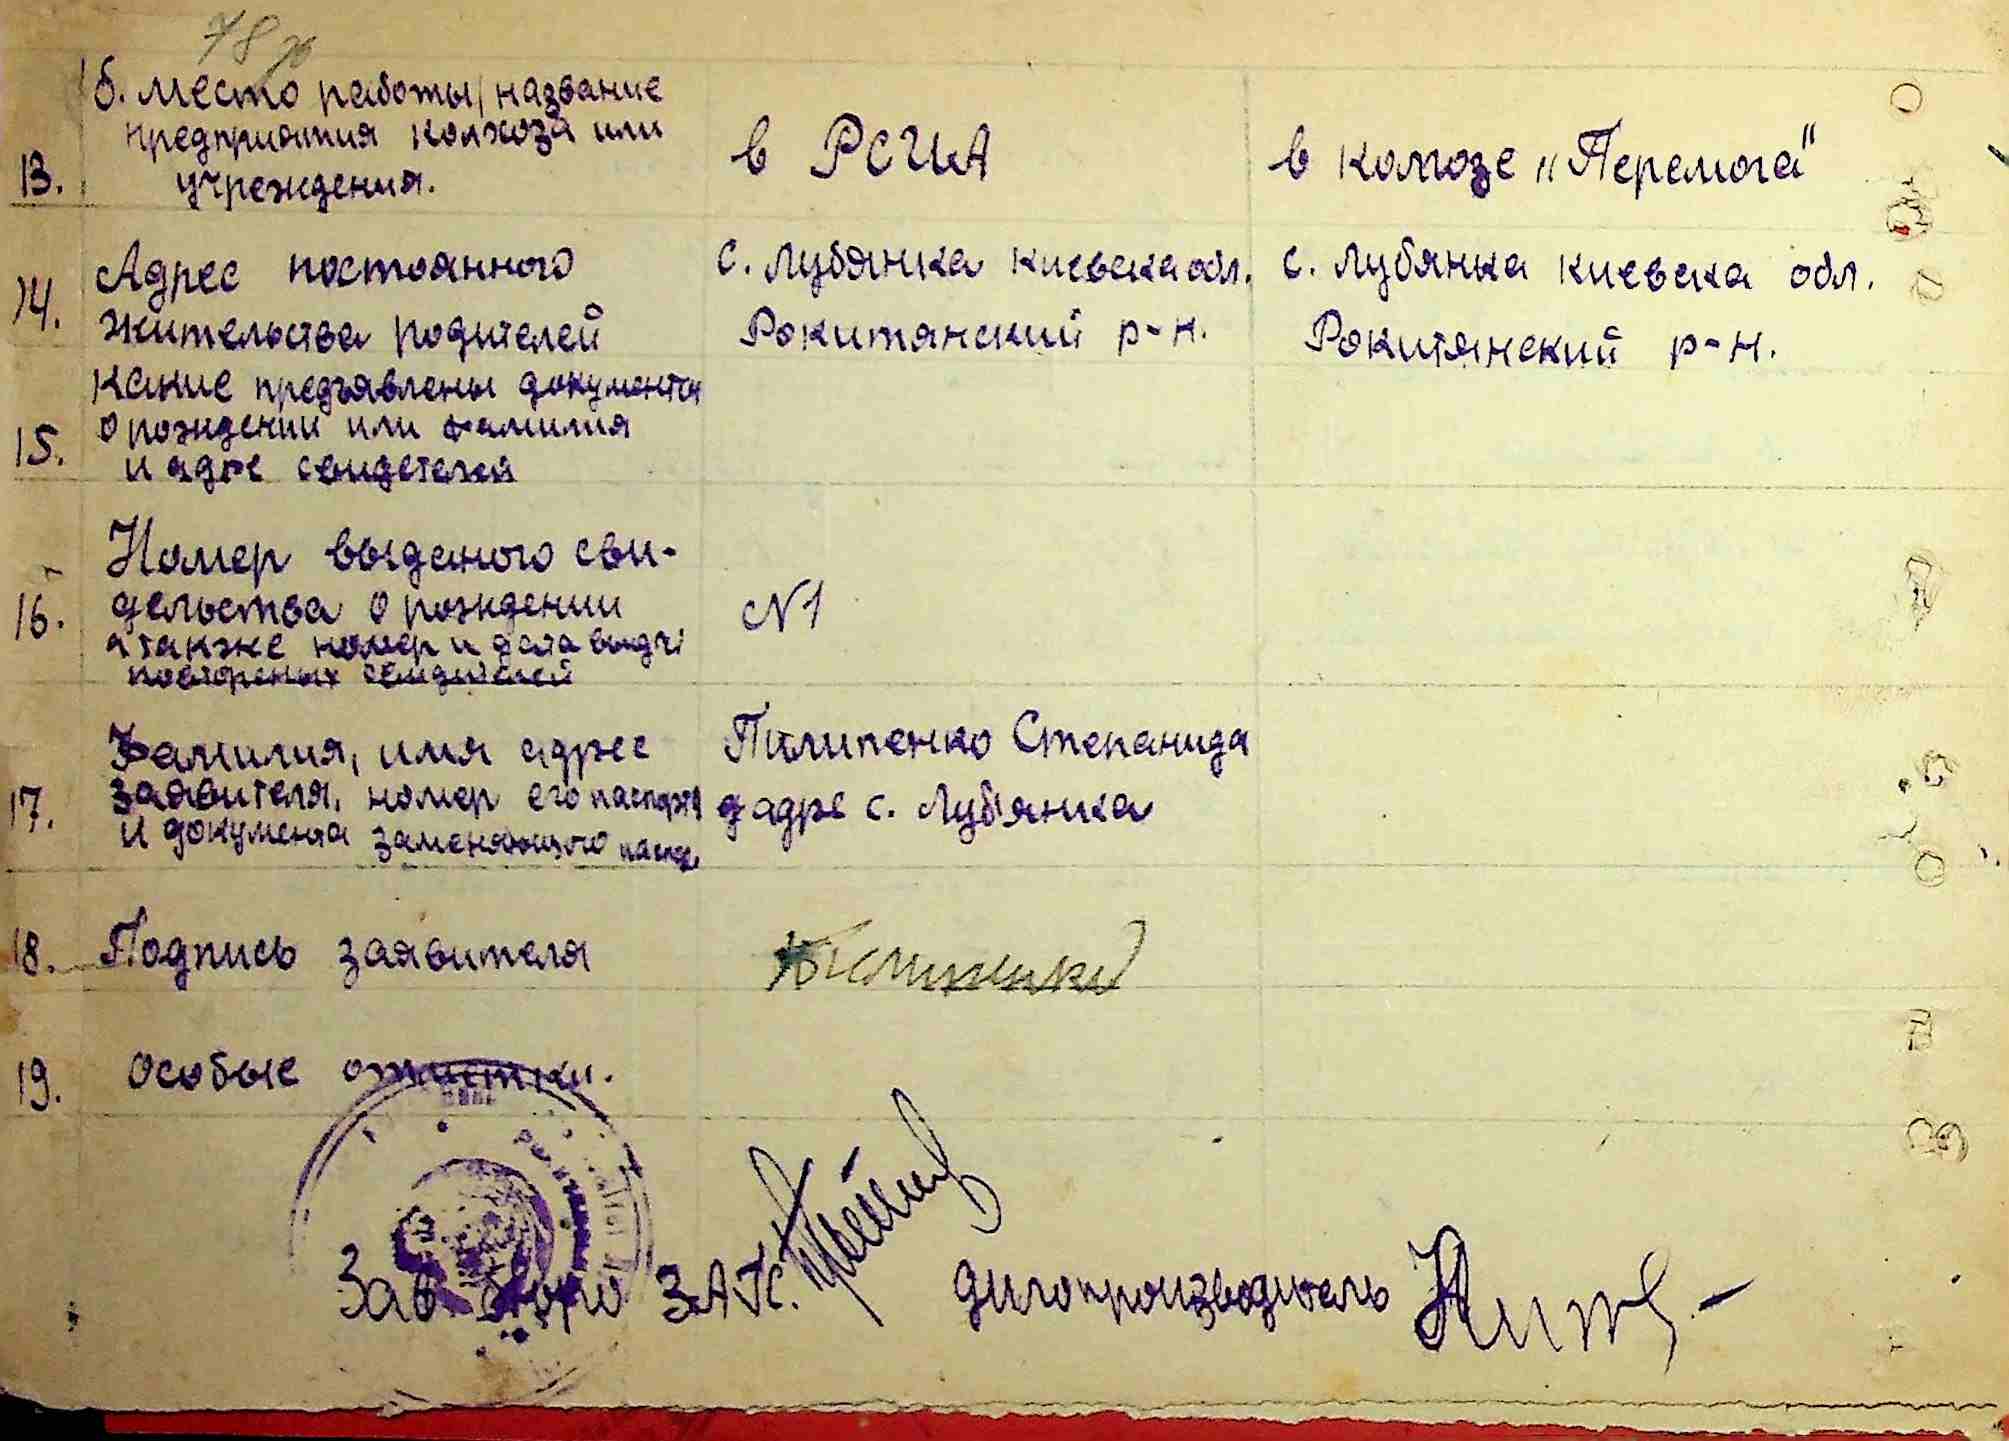 78
б. место работы, название
предприятия колхоза или
учреждения.
13.
в РСЧА
в колхозе „Перемога"
14.
Адрес постоянного
жительства родителей
с. Лубянка киевска обл.
Рокитянский р-н.
с. Лубянка киевска обл.
Рокитянский р-н.
15.
какие предъявлены документы
о рождении или фамилия
и адре свидетелей
16.
Номер выданого сви-
дельства о рождении
а также номер и дата выдчі
повторных
№1
17.
Фамилия, имя адрес
заявителя, номер его паспорта
и документа заменяющого паспор
Пилипенко Степанида
адре с. Лубянка
18.
Подпись заявителя
19.
Особые отметки.
Зав. бюро ЗАГС.
дилопроизводитель